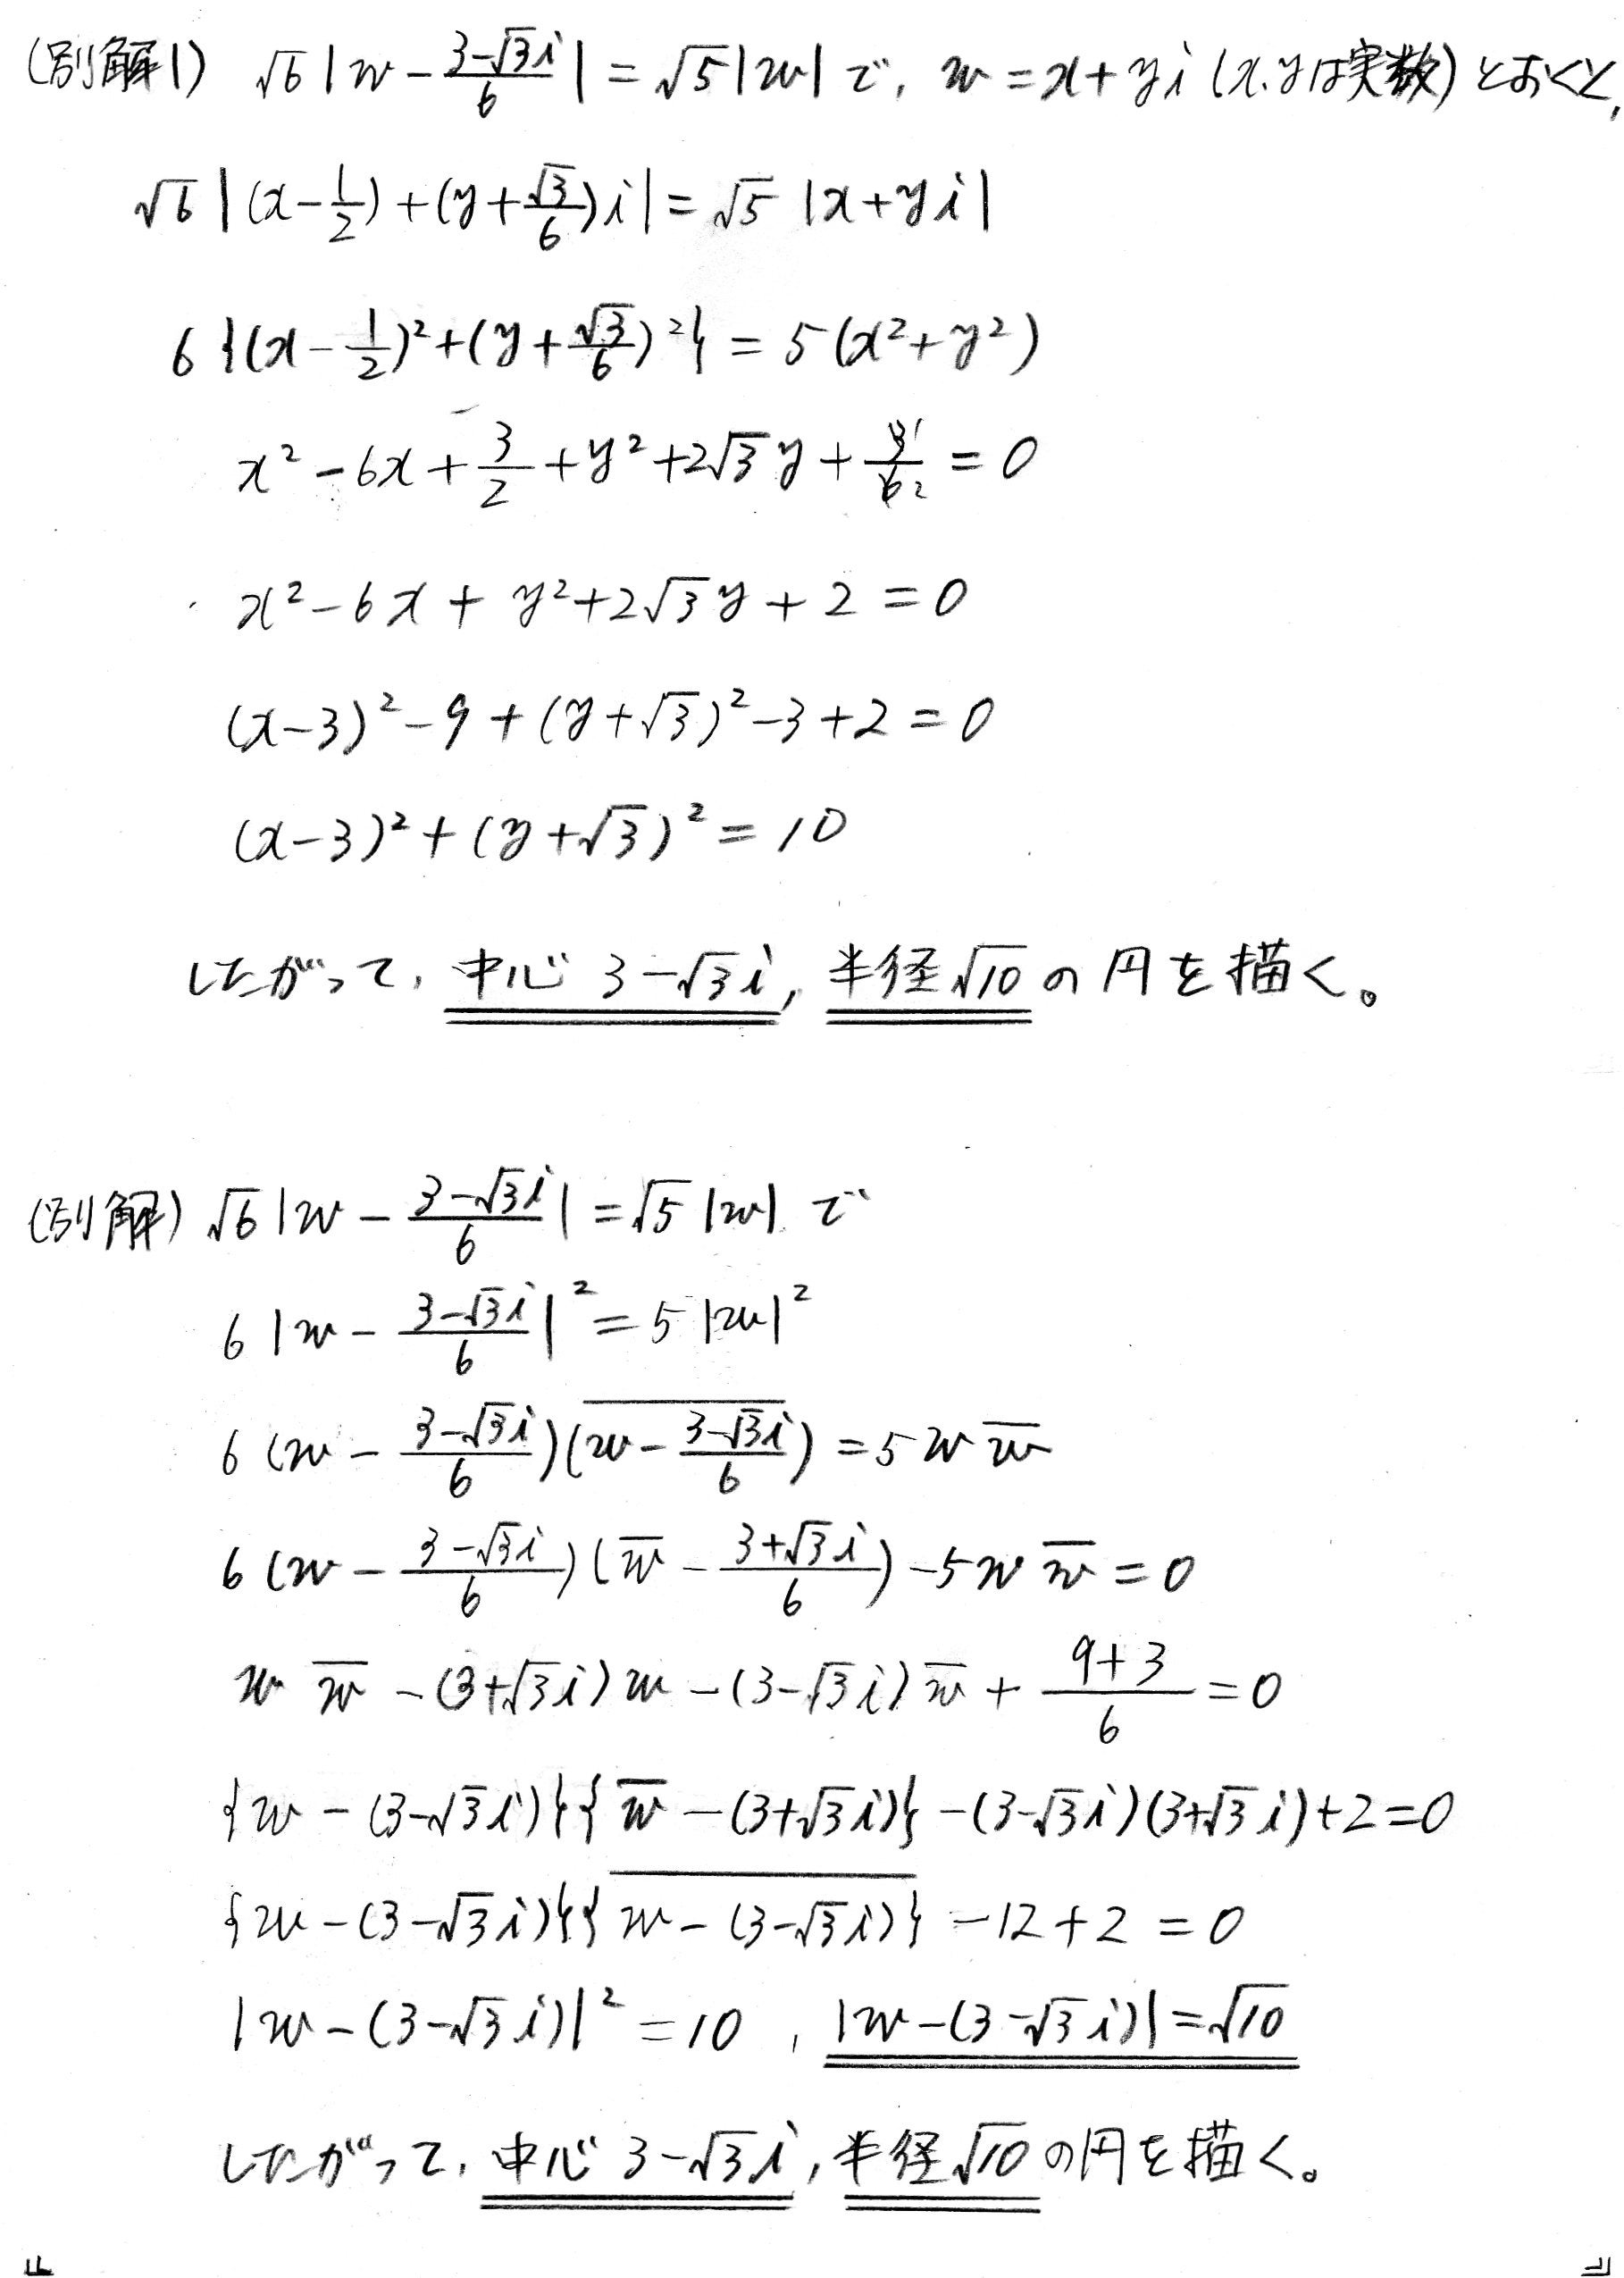 (別解1) √6|w - (3-√3i)/6| = √5|w| で, w = x+yi (x, yは実数) とおくと,
√6|(x-1/2)+(y+√3/6)i| = √5|x+yi|
6{(x-1/2)²+(y+√3/6)²} = 5(x²+y²)
x²-6x+3/2+y²+2√3y+1/2 = 0
x²-6x+y²+2√3y+2 = 0
(x-3)²-9+(y+√3)²-3+2 = 0
(x-3)²+(y+√3)² = 10
したがって, 中心 3-√3i, 半径√10 の円を描く。
(別解) √6|w - (3-√3i)/6| = √5|w| で
6|w - (3-√3i)/6|² = 5|w|²
6(w - (3-√3i)/6)(\overline{w - (3-√3i)/6}) = 5w\overline{w}
6(w - (3-√3i)/6)(\overline{w} - (3+√3i)/6) - 5w\overline{w} = 0
w\overline{w} - (3+√3i)w - (3-√3i)\overline{w} + (9+3)/6 = 0
{w - (3-√3i)}{\overline{w} - (3+√3i)} - (3-√3i)(3+√3i)+2 = 0
{w - (3-√3i)}{\overline{w - (3-√3i)}} - 12 + 2 = 0
|w - (3-√3i)|² = 10 , |w - (3-√3i)| = √10
したがって, 中心 3-√3i, 半径√10 の円を描く。